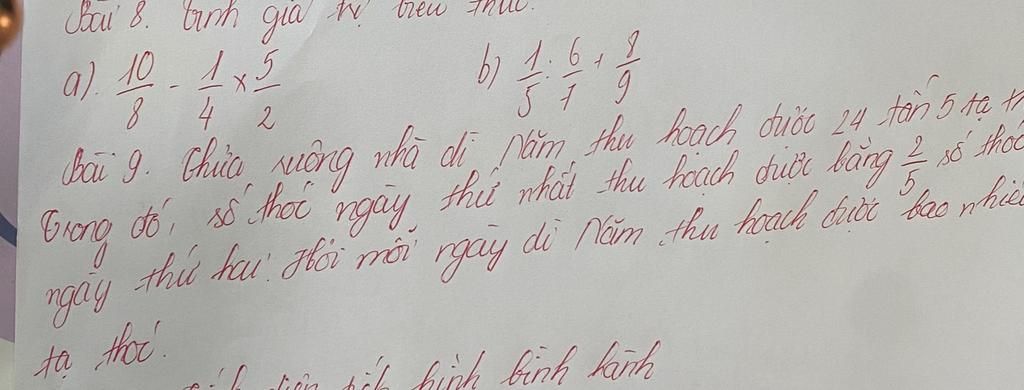 Bài 8. Tính giá trị biểu thức.
a). 10/8 - 1/4 × 5/2 b) 1/5 : 6/7 + 8/9
Bài 9. Thửa ruộng nhà dì Năm thu hoạch được 24 tấn 5 tạ
Trong đó, số thóc ngày thứ nhất thu hoạch được bằng 2/5 số thóc
ngày thứ hai. Hỏi mỗi ngày dì Năm thu hoạch được bao nhiêu
tạ thóc.
diện tích hình bình hành